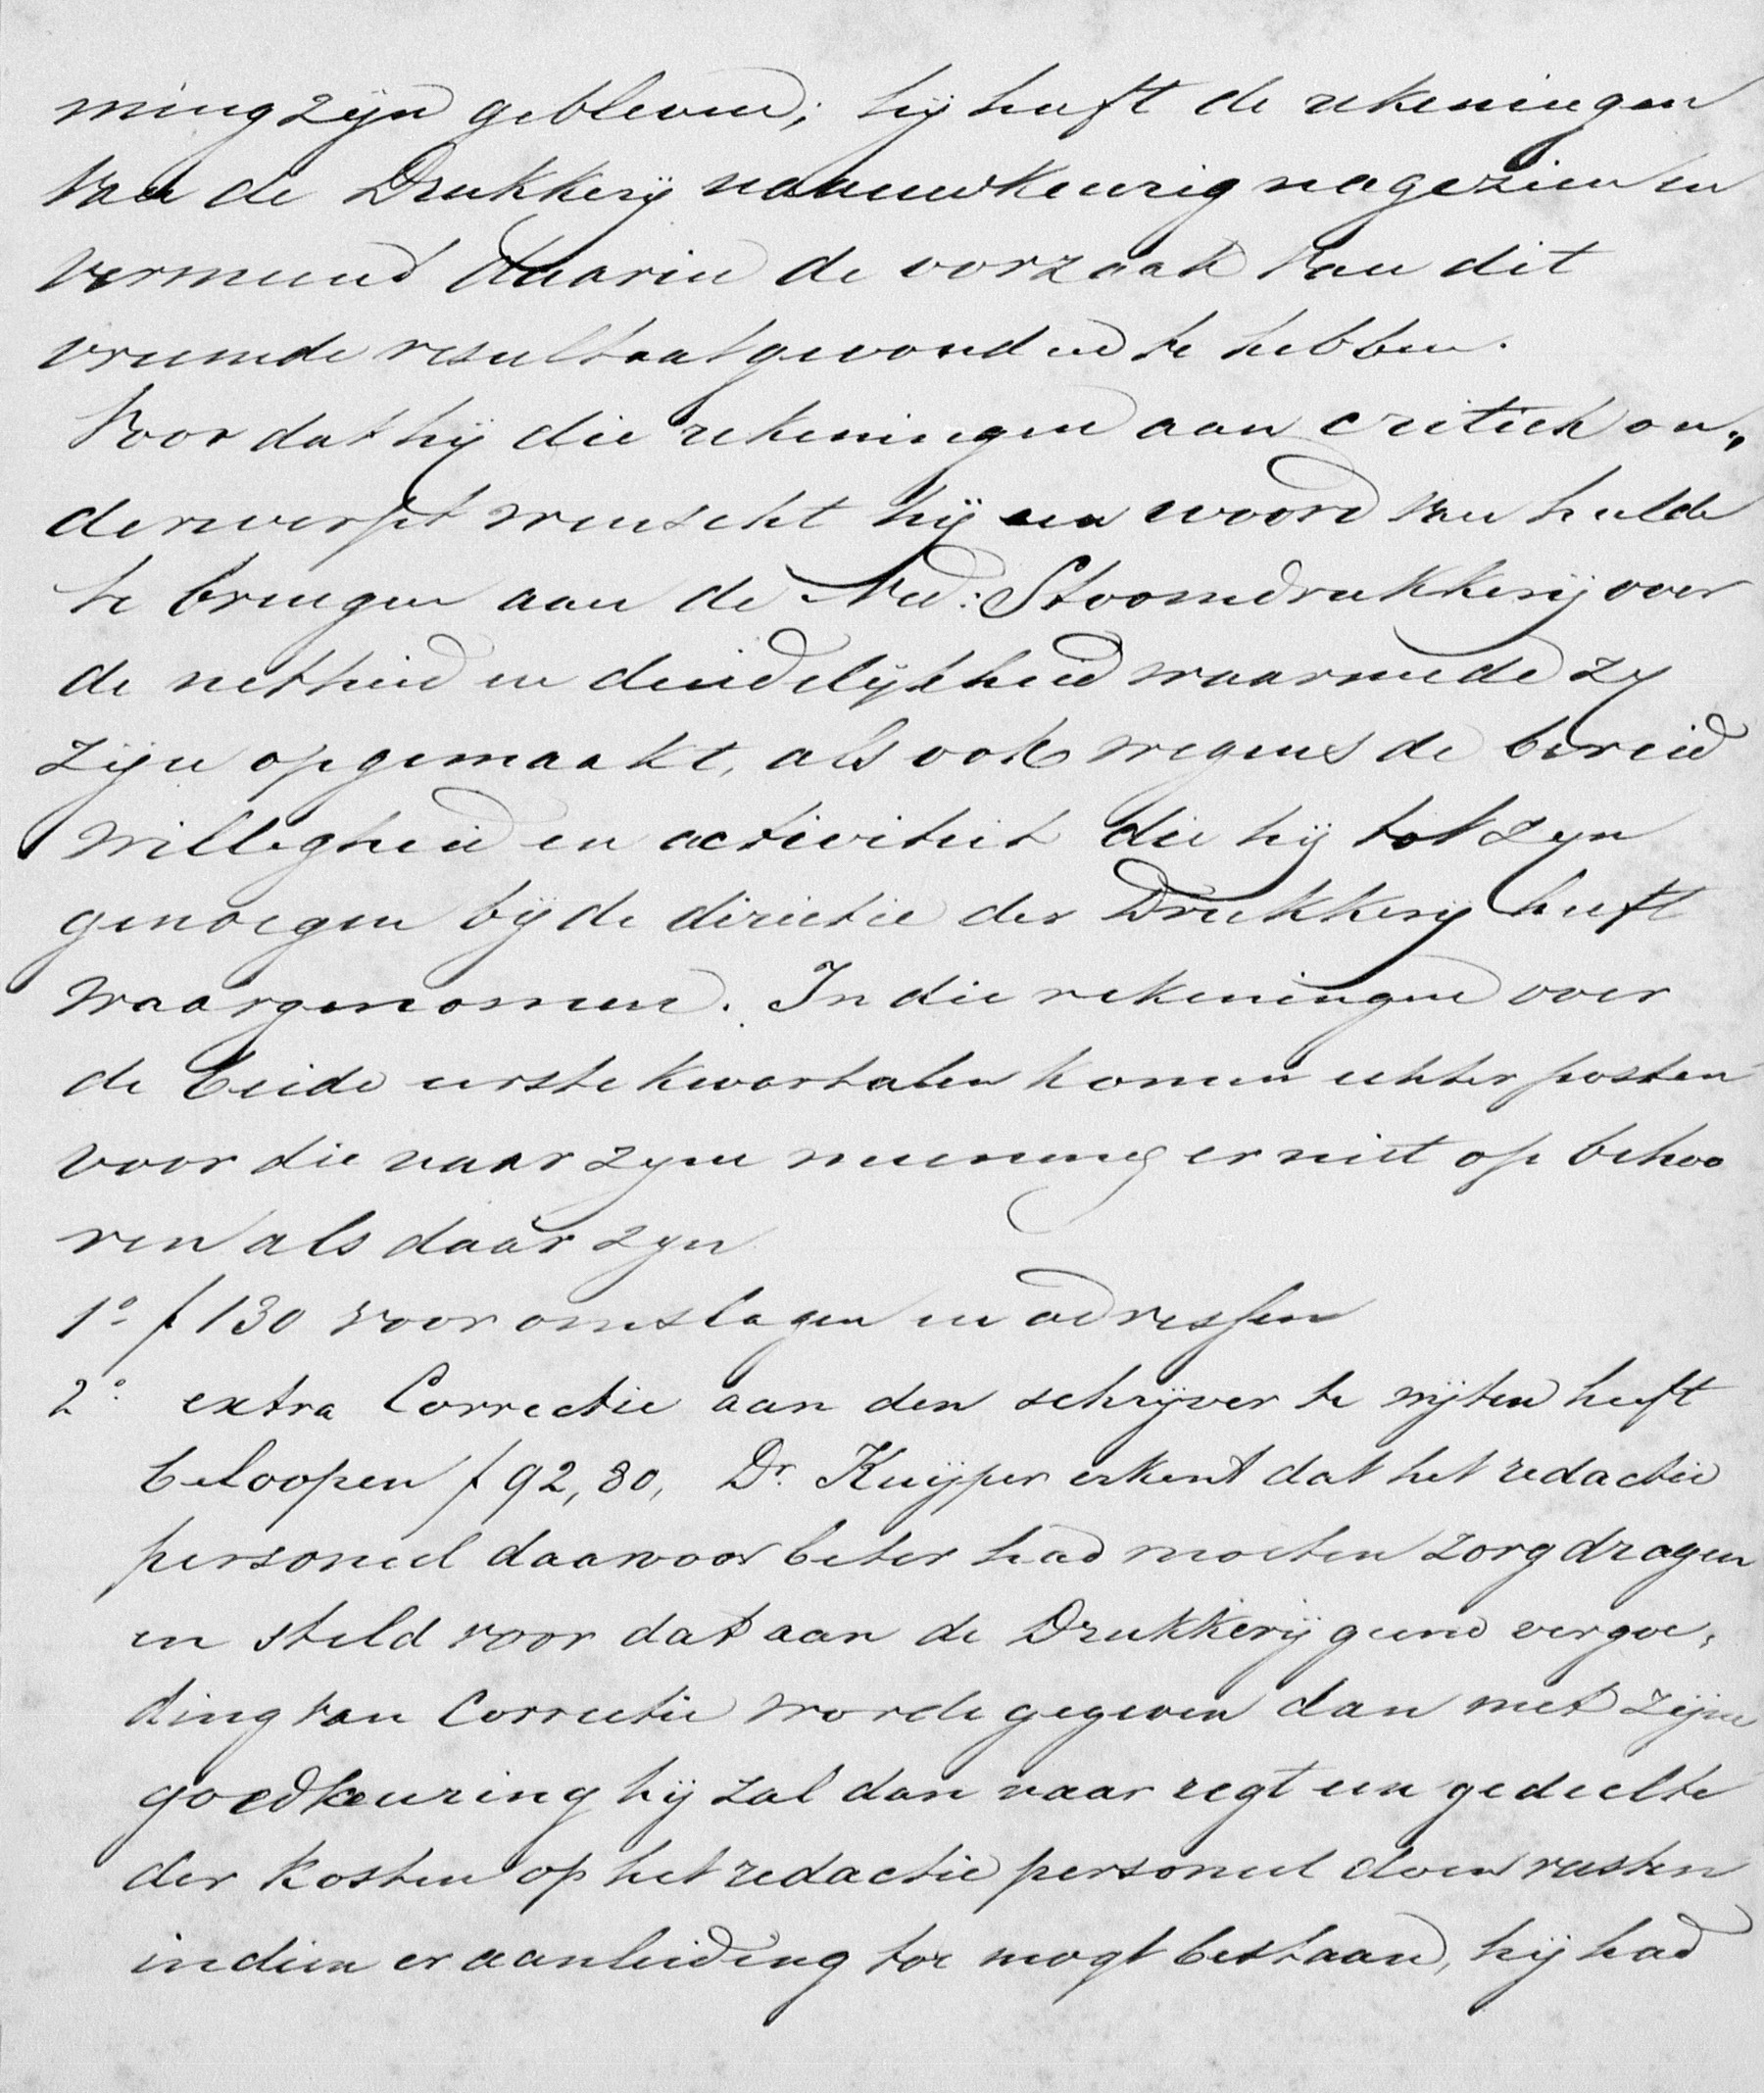 ming zijn gebleven; hij heeft de rekeningen
van de Drukkerij nauwkeurig nagezien en
vermeend daarin de oorzaak van dit
vreemde resultaat gevonden te hebben.
Voor dat hij die rekeningen aan critiek on„
derwerpt wenscht hij een woord van hulde
te brengen aan de Ned: Stoomdrukkerij over
de netheid en duidelijkheid waarmede zy
zijn opgemaakt, als ook wegens de bereid
willigheid en activiteit die hij tot zyn
genoegen bij de directie der Drukkerij heeft
waargenomen. In die rekeningen over
de beide eerste kwartalen komen echter posten
voor die naar zyne meening er niet op behoo
ren als daar zyn
1º f 130 voor omslagen en adressen
2º extra Correctie aan den schrijver te wijten heeft
beloopen f 92,80, Dr. Kuijper erkent dat het redactie
personeel daarvoor beter had moeten zorg dragen
en steld voor dat aan de Drukkerij geene vergoe„
ding van Correctie worde gegeven dan met zijne
goedkeuring hij zal dan naar regt een gedeelte
der kosten op het redactie personeel doen rusten
indien er aanleiding toe mogt bestaan, hij had